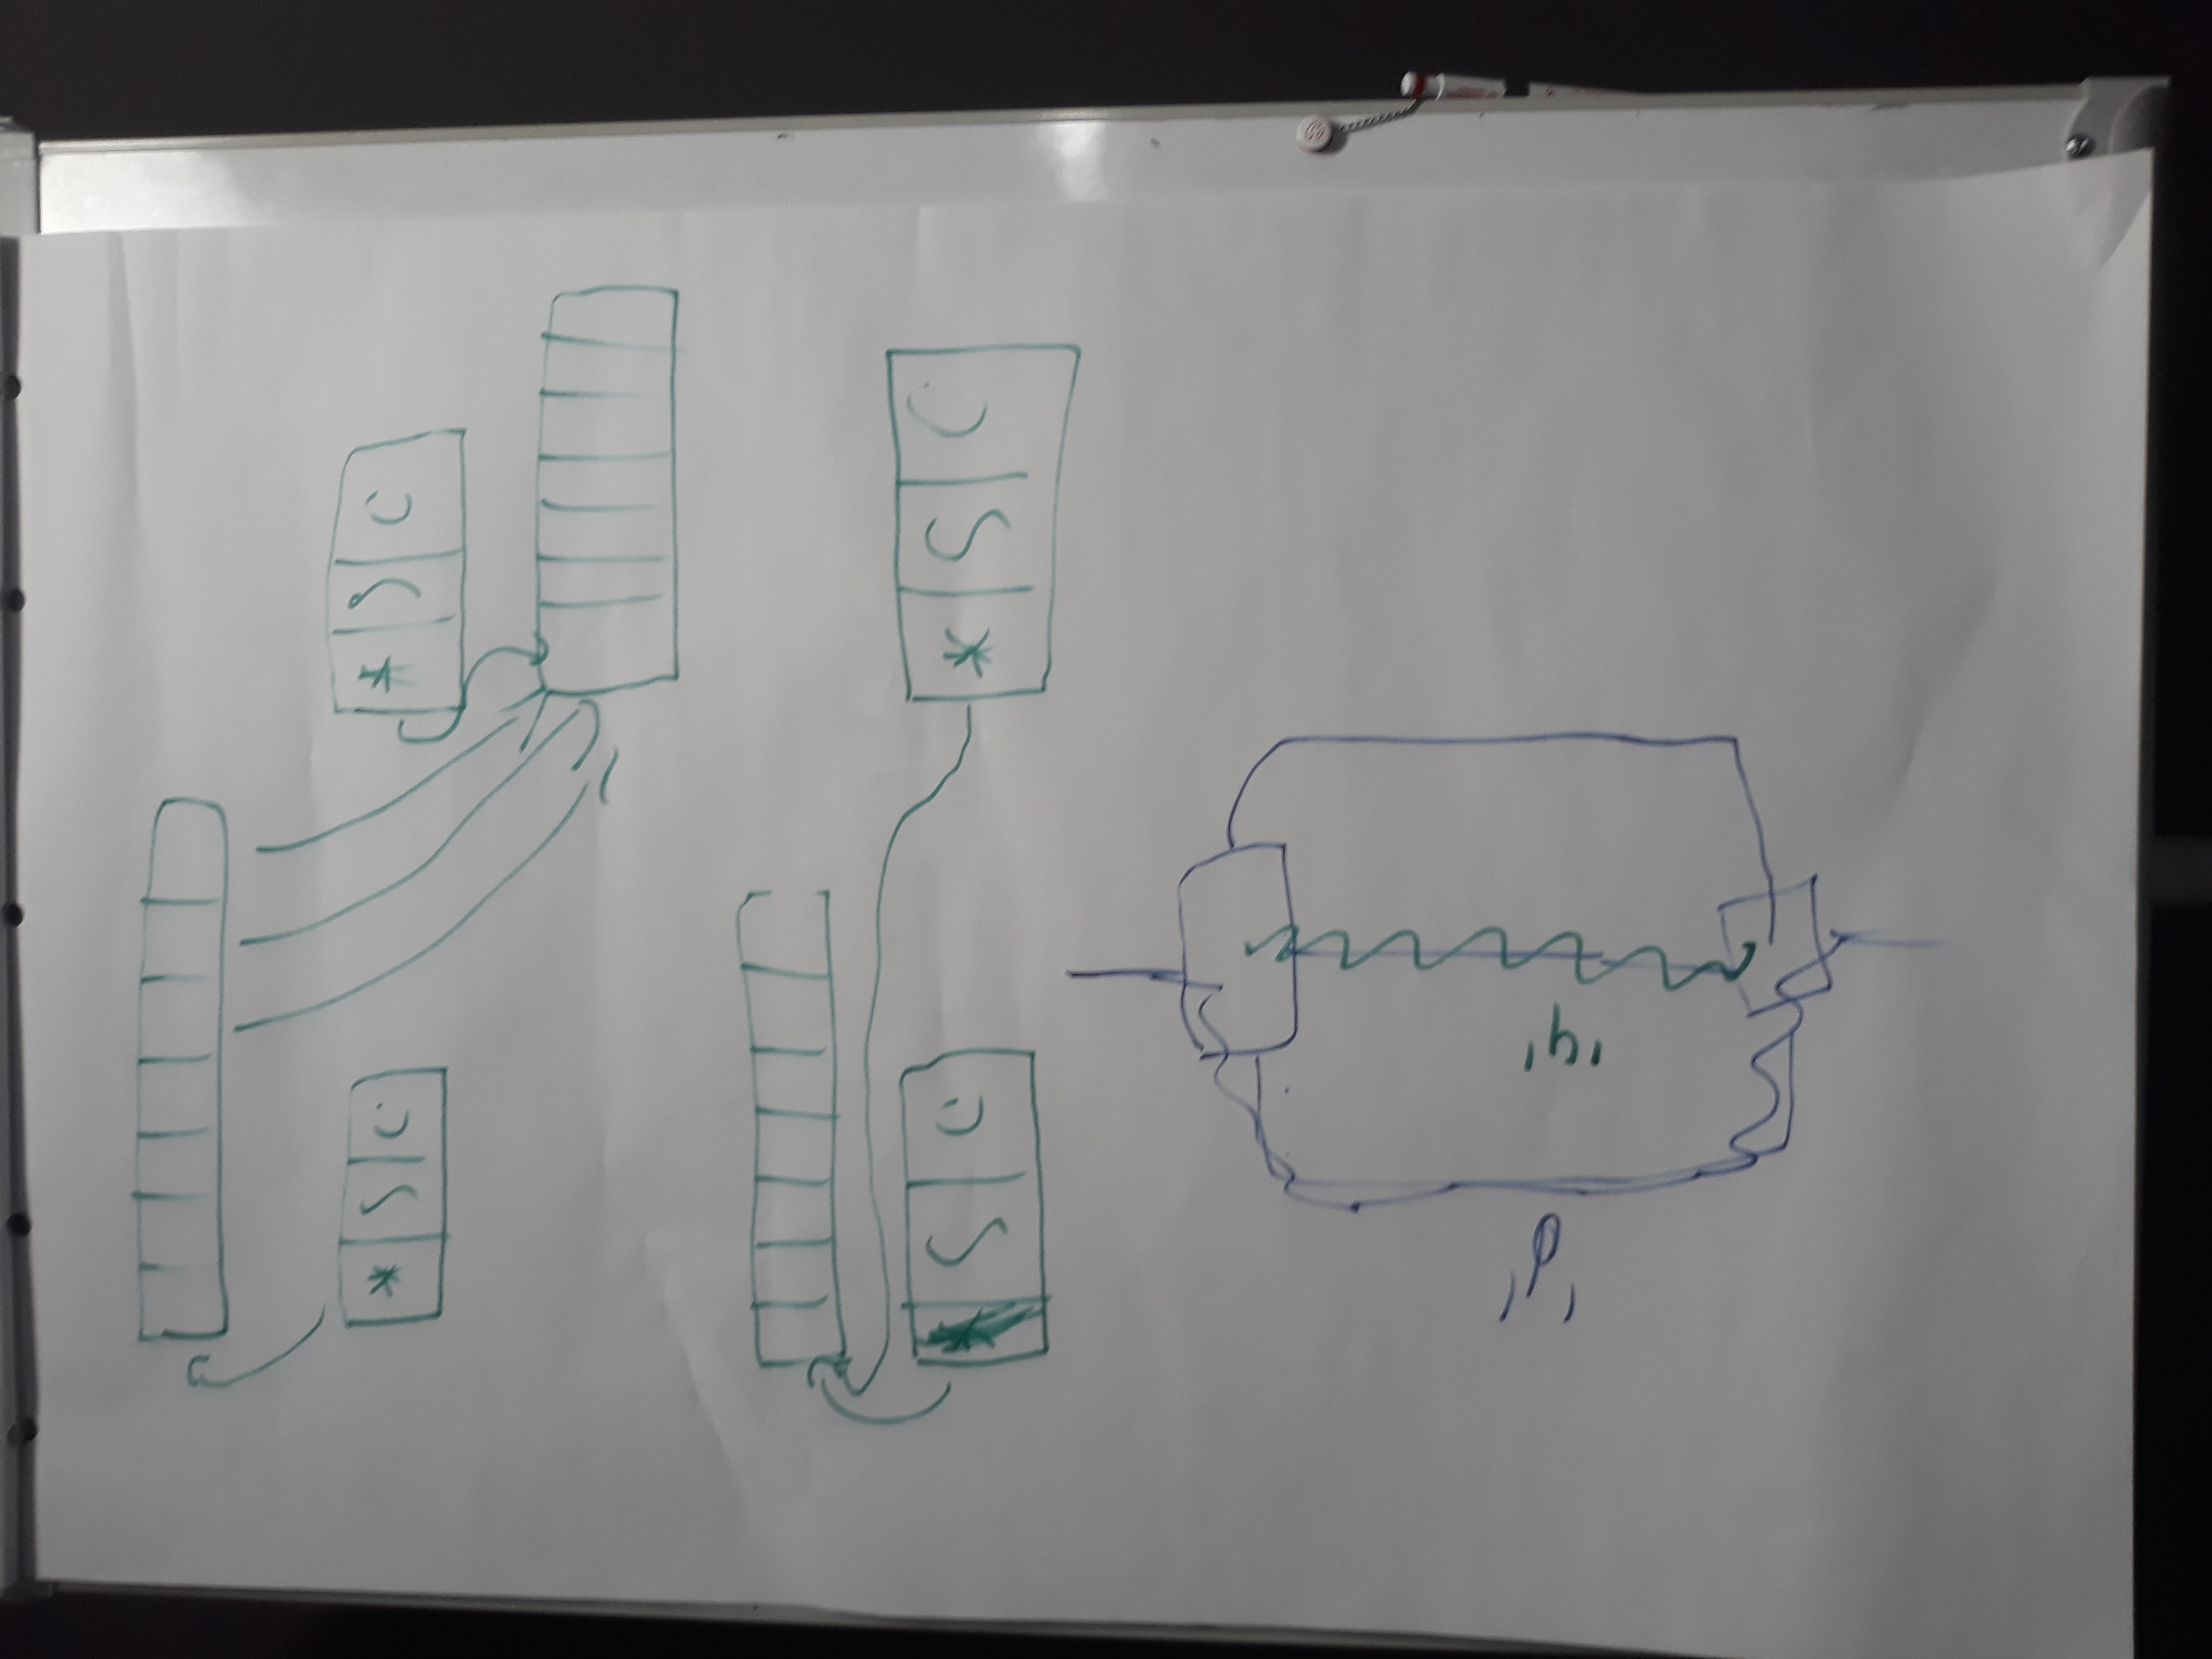 * S C
* S C
* S C
* S C